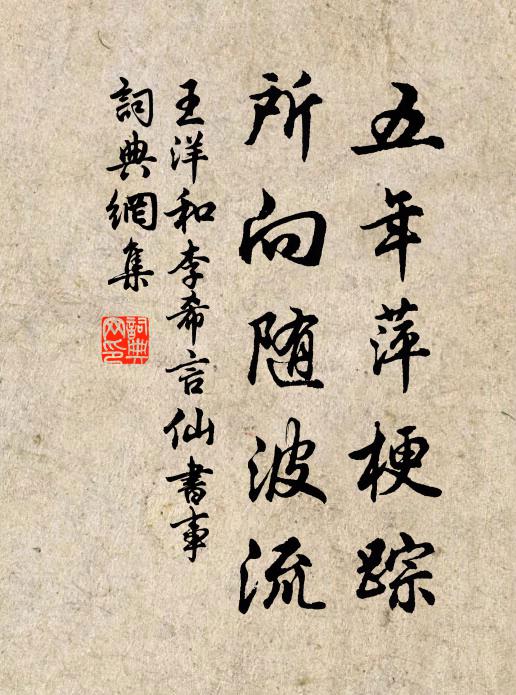 五年萍梗踪
所向随波流
王洋和李希言仙書事
詞典網集
詞典網印